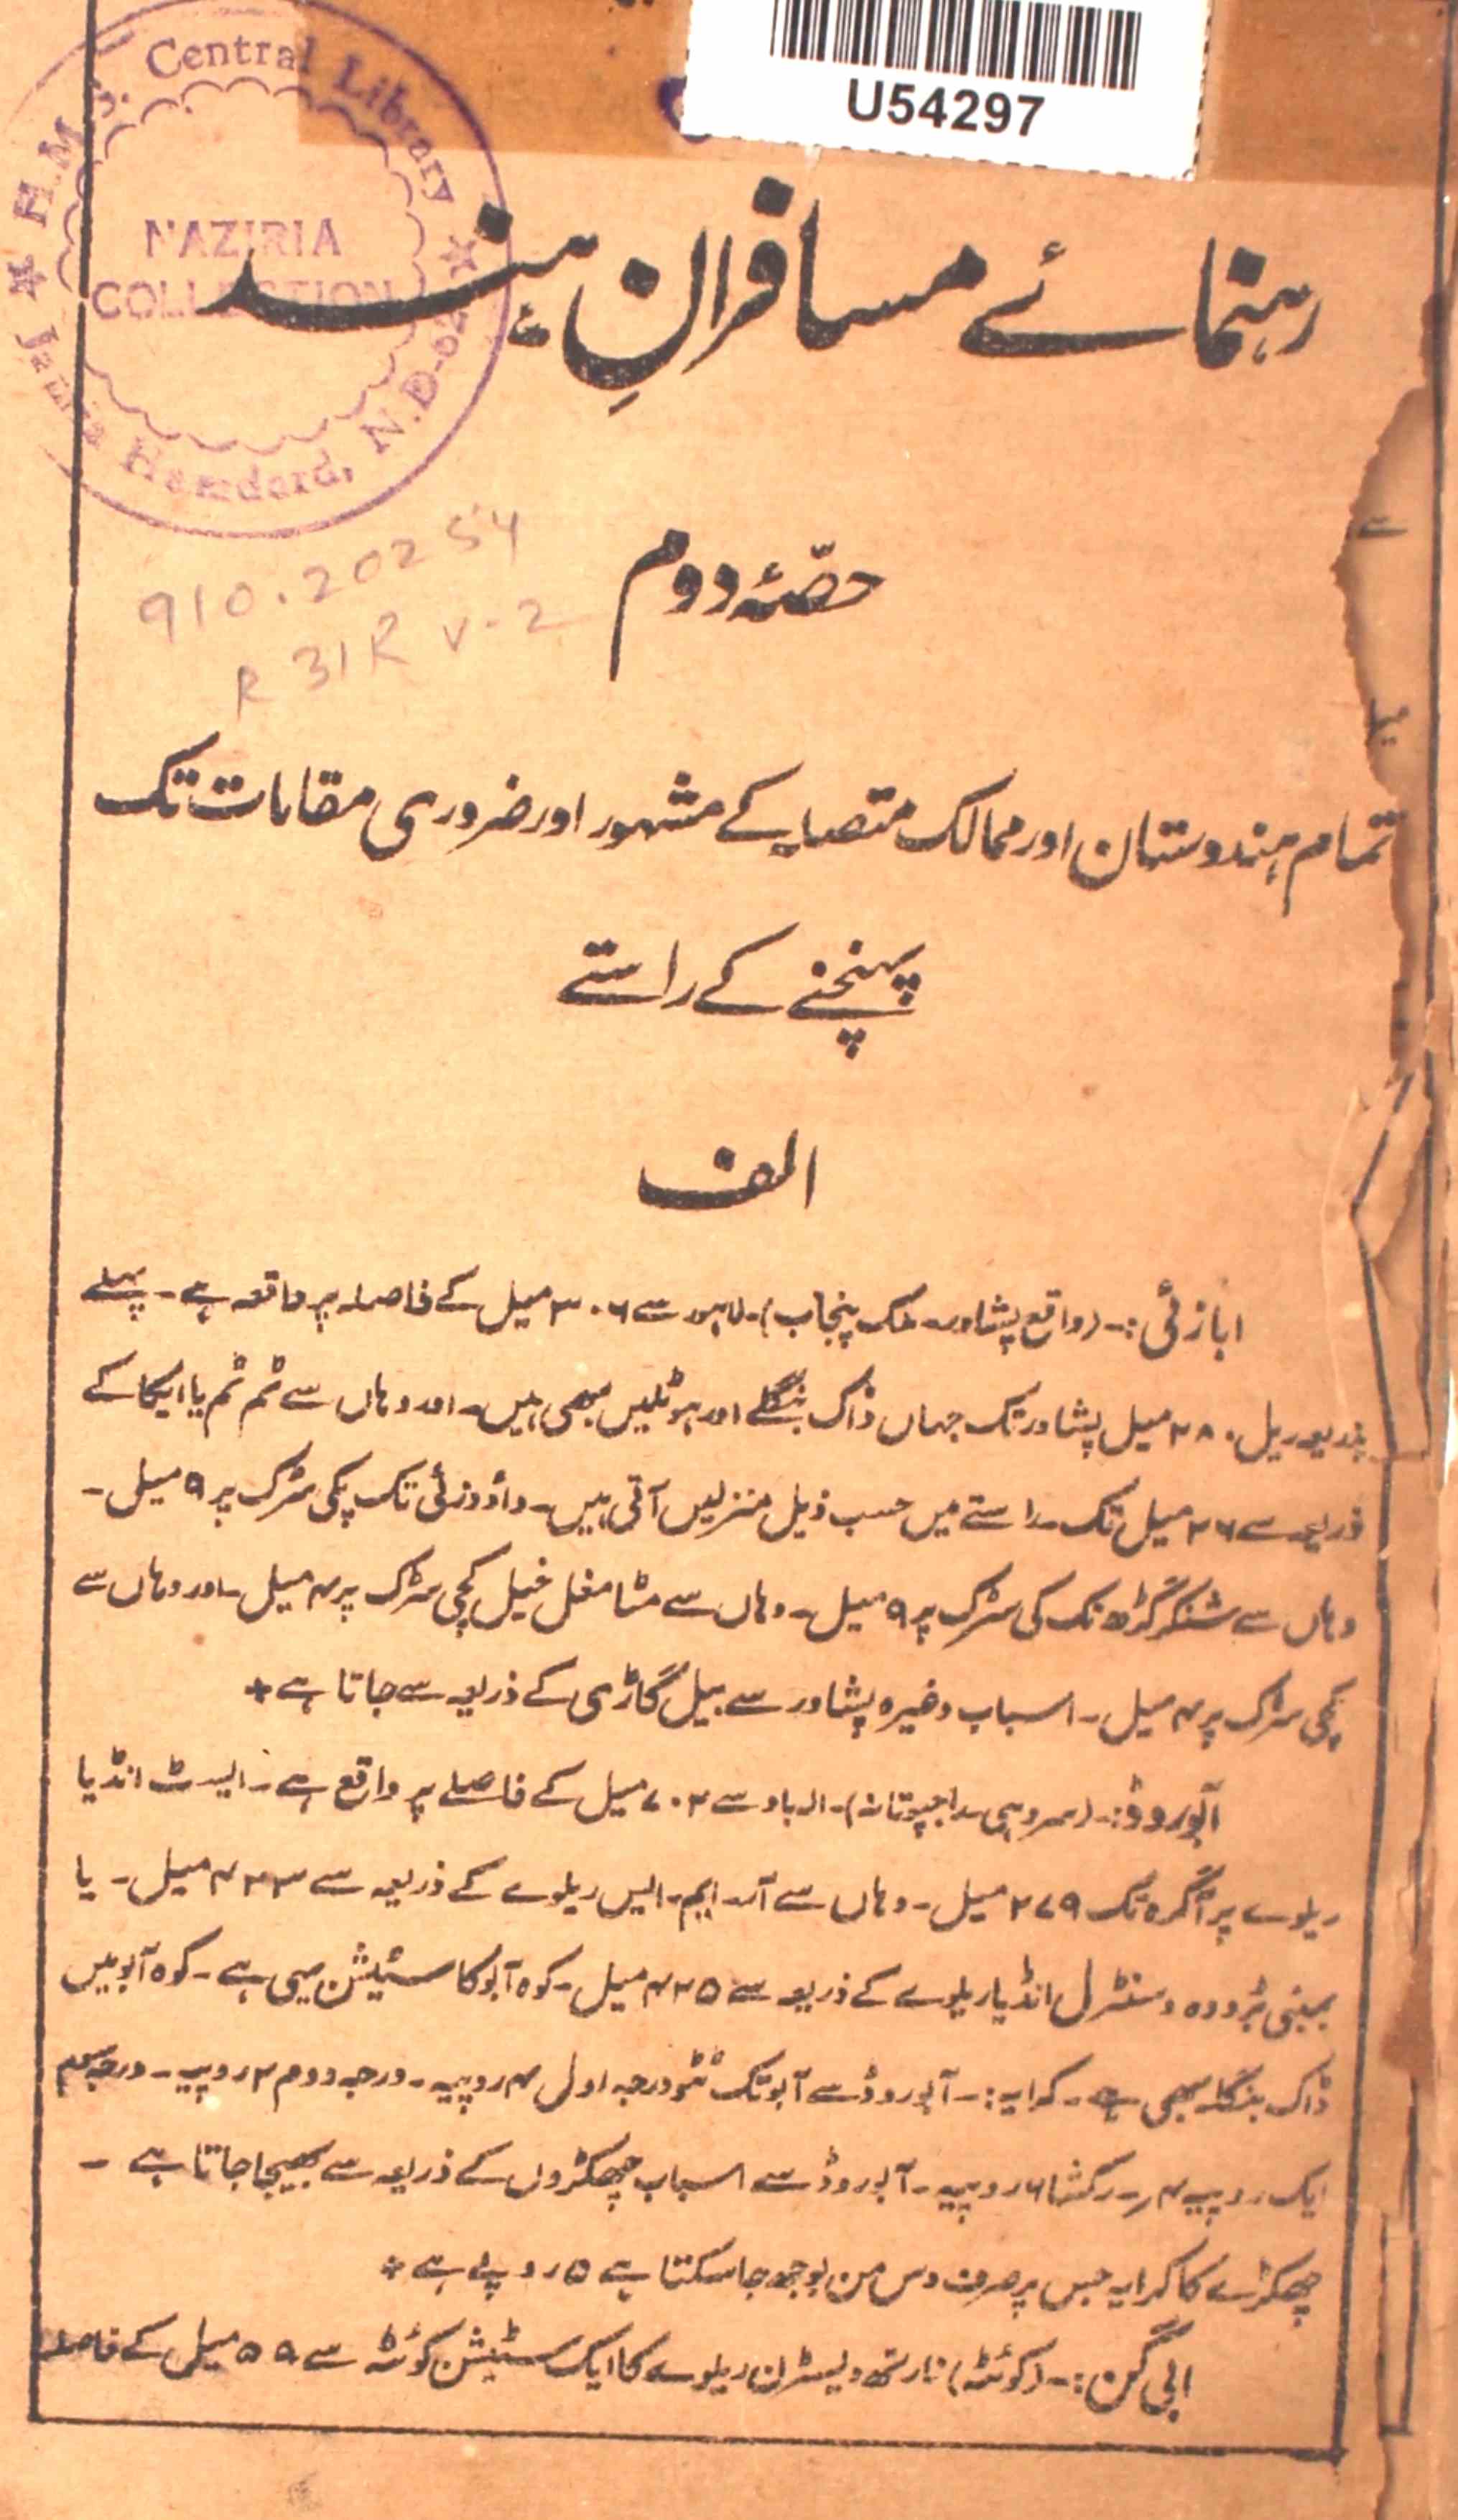 Central Library
H.M.S.
NAZIRIA
COLLECTION
Jamia Hamdard, N.D-62
U54297
رہنمائے مسافرانِ ہند
910.20254
R 31R V-2
حصّۂ دوم
سے
میل
تمام ہندوستان اور ممالک متصلہ کے مشہور اور ضروری مقامات تک
پہنچنے کے راستے
الف
ابازئی :- (واقع پشاور۔ ملک پنجاب)۔ لاہور سے ۳۰۶ میل کے فاصلہ پر واقعہ ہے۔ پہلے
بذریعہ ریل ۲۸۰ میل پشاور تک جہاں ڈاک بنگلے اور ہوٹلیں بھی ہیں۔ اور وہاں سے ٹم ٹم یا ایکا کے
ذریعہ سے ۲۶ میل تک۔ راستے میں حسب ذیل منزلیں آتی ہیں۔ داؤدزئی تک پکی سڑک پر ۹ میل۔
وہاں سے شنکر گڑھ تک کی سڑک پر ۹ میل۔ وہاں سے مٹا مغل خیل کچی سڑک پر ۴ میل۔ اور وہاں سے
کچی سڑک پر ۴ میل۔ اسباب وغیرہ پشاور سے بیل گاڑی کے ذریعہ سے جاتا ہے *
آبوروڈ :- (سروہی۔ راجپوتانہ)۔ الہ باد سے ۷۰۲ میل کے فاصلے پر واقع ہے۔ ایسٹ انڈیا
ریلوے پر آگرہ تک ۲۷۹ میل۔ وہاں سے آر۔ ایم۔ ایس ریلوے کے ذریعہ سے ۴۲۳ میل۔ یا
بمبئی بڑودہ و سنٹرل انڈیا ریلوے کے ذریعہ سے ۴۲۵ میل۔ کوہ آبو کا سٹیشن یہی ہے۔ کوہ آبو میں
ڈاک بنگلہ بھی ہے۔ کرایہ :- آبوروڈ سے آبو تک ٹٹو درجہ اول ۴ روپیہ۔ درجہ دوم ۲ روپیہ۔ درجہ سوم
ایک روپیہ ۴ر۔ رکشا ۶ روپیہ۔ آبوروڈ سے اسباب چھکڑوں کے ذریعہ سے بھیجا جاتا ہے۔
چھکڑے کا کرایہ جس پر صرف دس من بوجھ جا سکتا ہے ۵ روپے ہے *
ابی گن :- (کوئٹہ) نارتھ ویسٹرن ریلوے کا ایک سٹیشن کوئٹہ سے ۵۹ میل کے فاصلہ